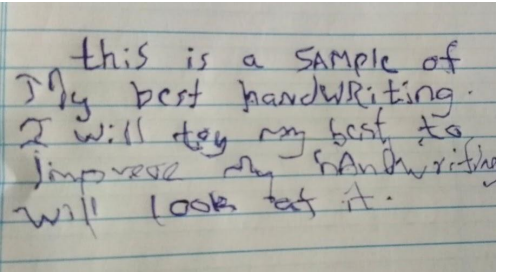 this is a SAMPle of
My best handWRiting.
I will try my best to
improve my hAndwriting
will look at it.